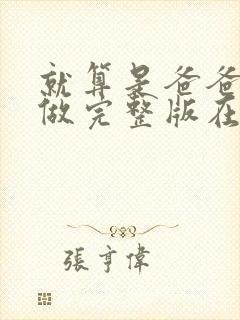 就算是爸爸
做完整版在
張亨偉